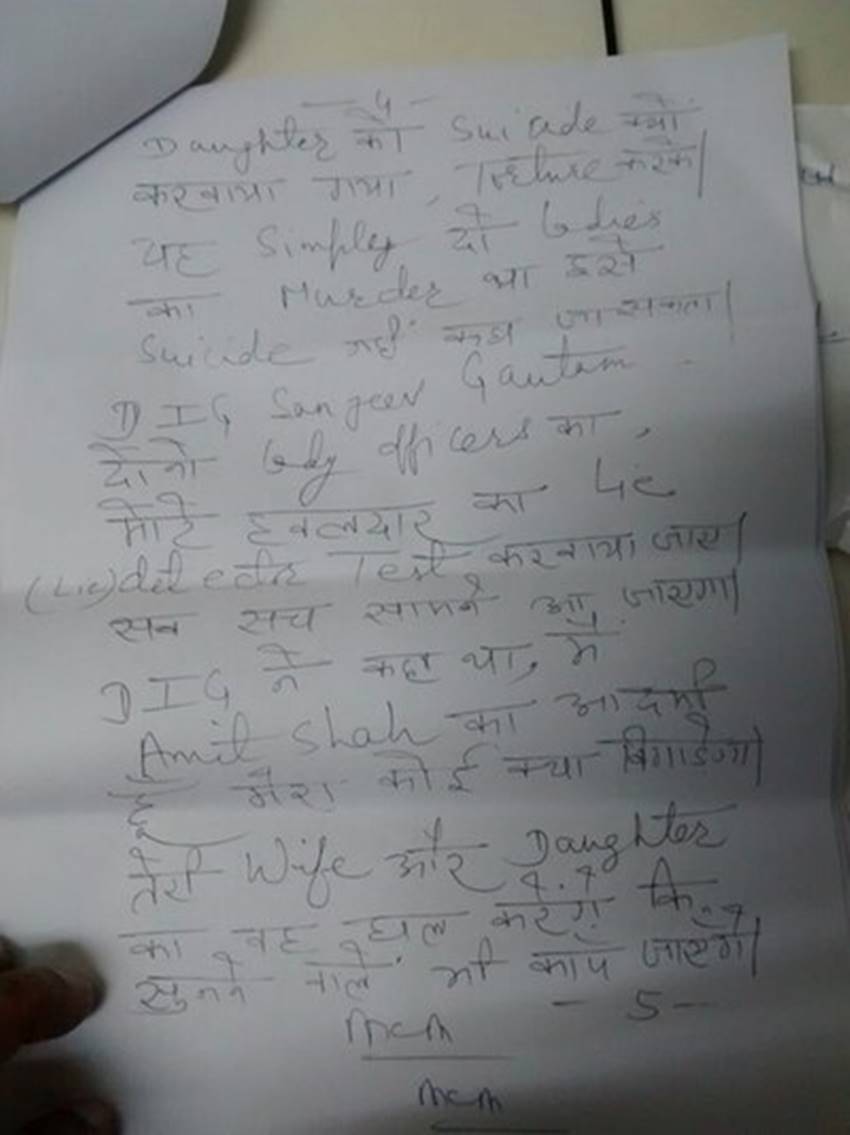 - 4 -
Daughter को Suicide क्यों
करवाया गया, Torture करके।
यह Simply दो Ladies
का Murder था इसे
Suicide नहीं कहा जा सकता।
DIG Sanjeev Gautam
दोनो Lady officers का,
मोटे हवलदार का Lie
(Lie) detector Test करवाया जाए।
सब सच सामने आ जाएगा।
DIG ने कहा था, मैं
Amit Shah का आदमी
हूँ मेरा कोई क्या बिगाडेगा।
तेरी Wife और Daughter
का वह हाल करेगें कि
सुनने वाले भी काँप जाएगें।
- 5 -